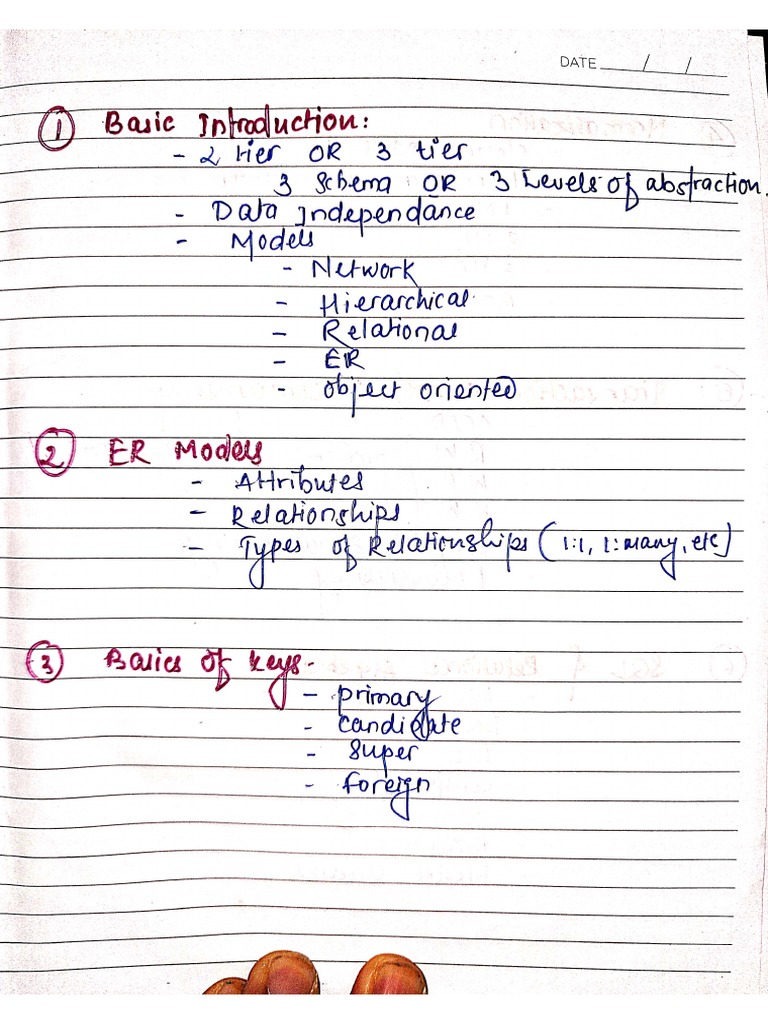 DATE / /
① Basic Introduction:
- 2 tier OR 3 tier
3 Schema OR 3 Levels of abstraction.
- Data Independance
- Models
- Network
- Hierarchical
- Relational
- ER
- Object oriented
② ER Models
- Attributes
- Relationships
- Types of Relationships (1:1, 1:many, etc)
③ Basics of keys.
- primary
- candidate
- super
- foreign